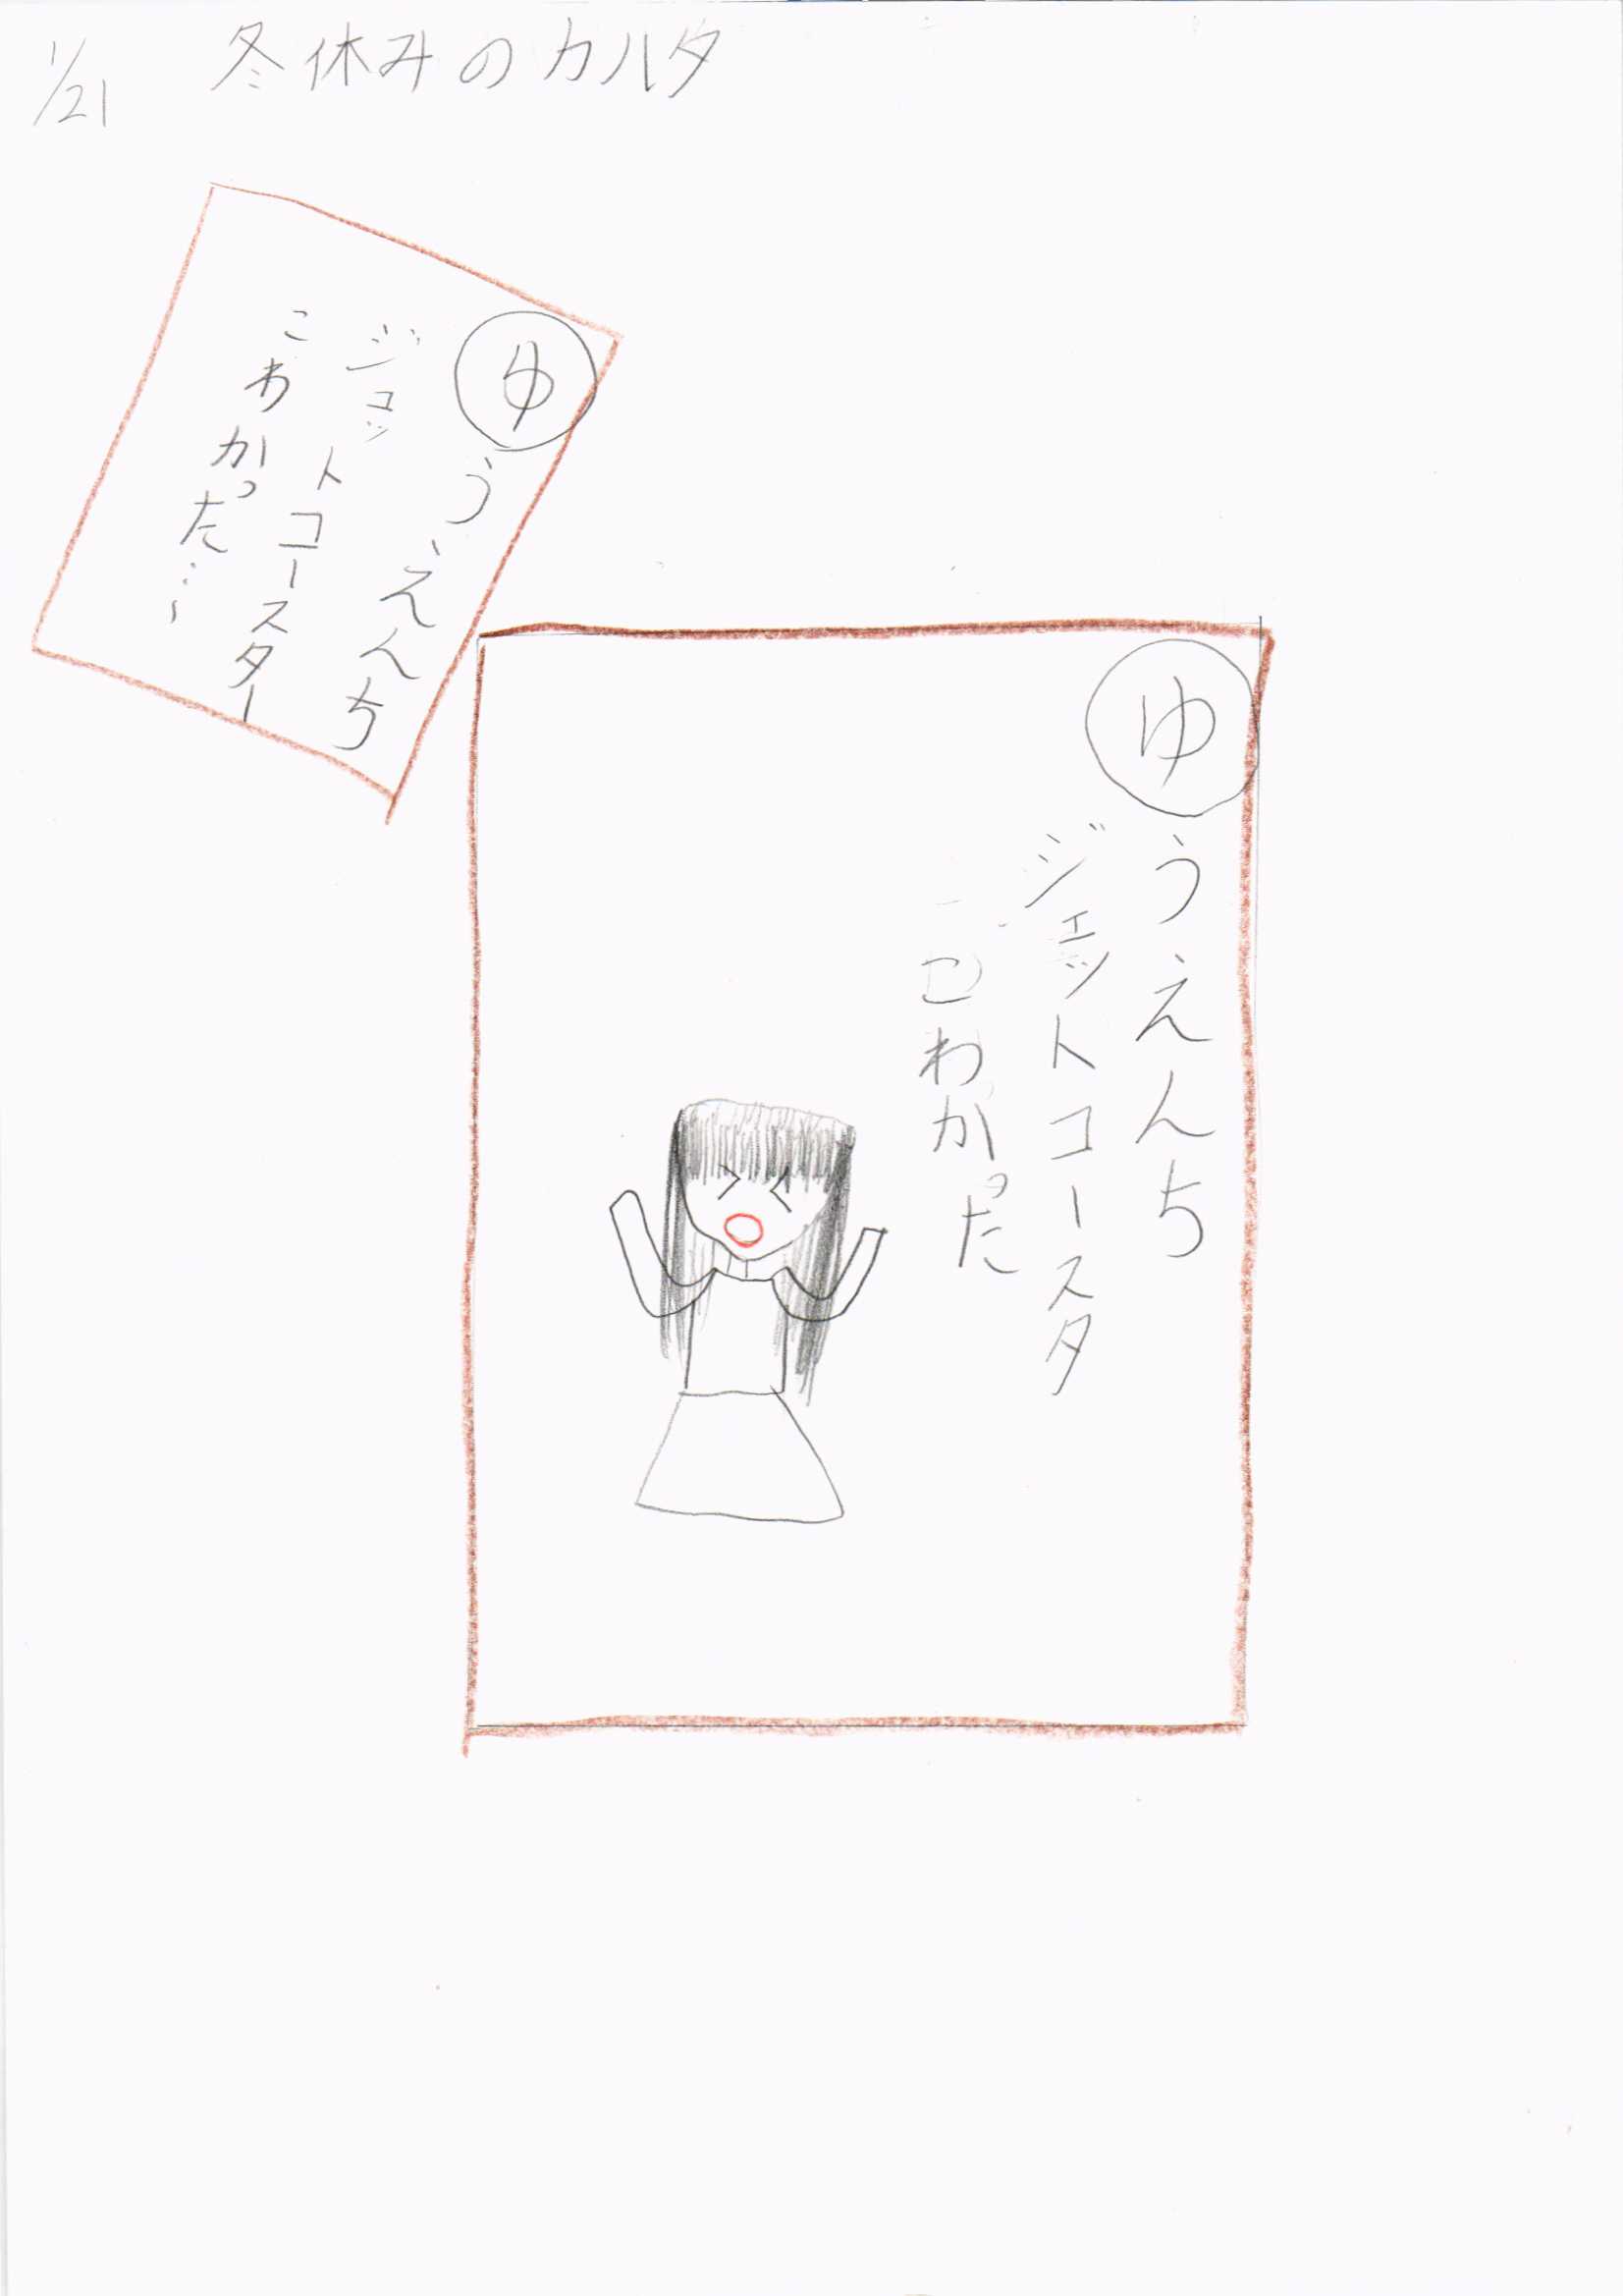 1/21 冬休みのカルタ
ゆうえんち
ジョットコースター
こわかった…
ゆうえんち
ジェットコースタ
こわかった